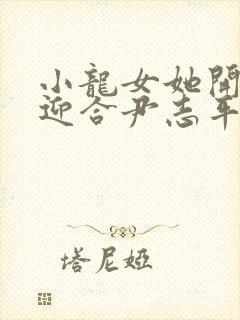 小龍女她開
迎合尹志平
塔尼婭